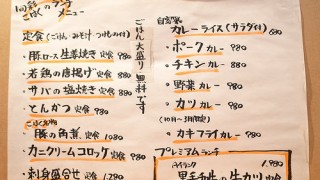 ランチ
メニュー
定食(ごはん・みそ汁・つけもの付)
・豚ロース生姜焼き定食 980
・若鶏の唐揚げ定食 980
・サバの塩焼き定食 980
・とんかつ定食 980
豚の角煮定食 1080
・カニクリームコロッケ定食 980
・刺身盛合せ定食
ごはん大盛り無料です
自家製
カレーライス(サラダ付)
・ポークカレー 880
・チキンカレー 880
・野菜カレー 880
・カツカレー 980
・カキフライカレー 980
プレミアムランチ
1,980
黒毛和牛の生カツ定食